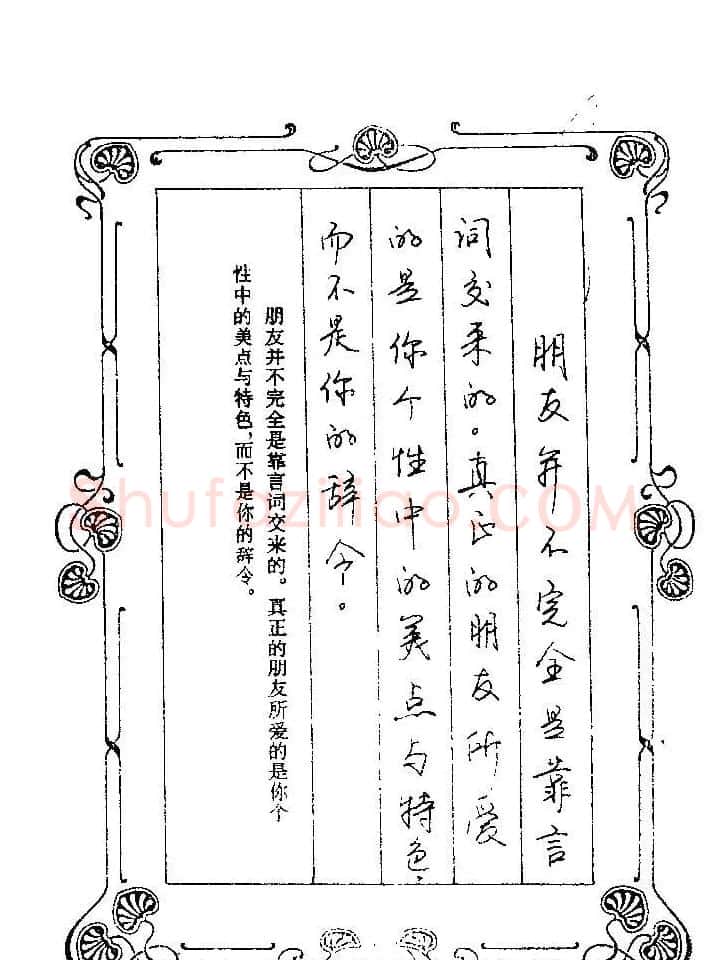 朋友并不完全是靠言
词交来的。真正的朋友所爱
的是你个性中的美点与特色，
而不是你的辞令。
朋友并不完全是靠言词交来的。真正的朋友所爱的是你个
性中的美点与特色，而不是你的辞令。
Shufaziliao.COM